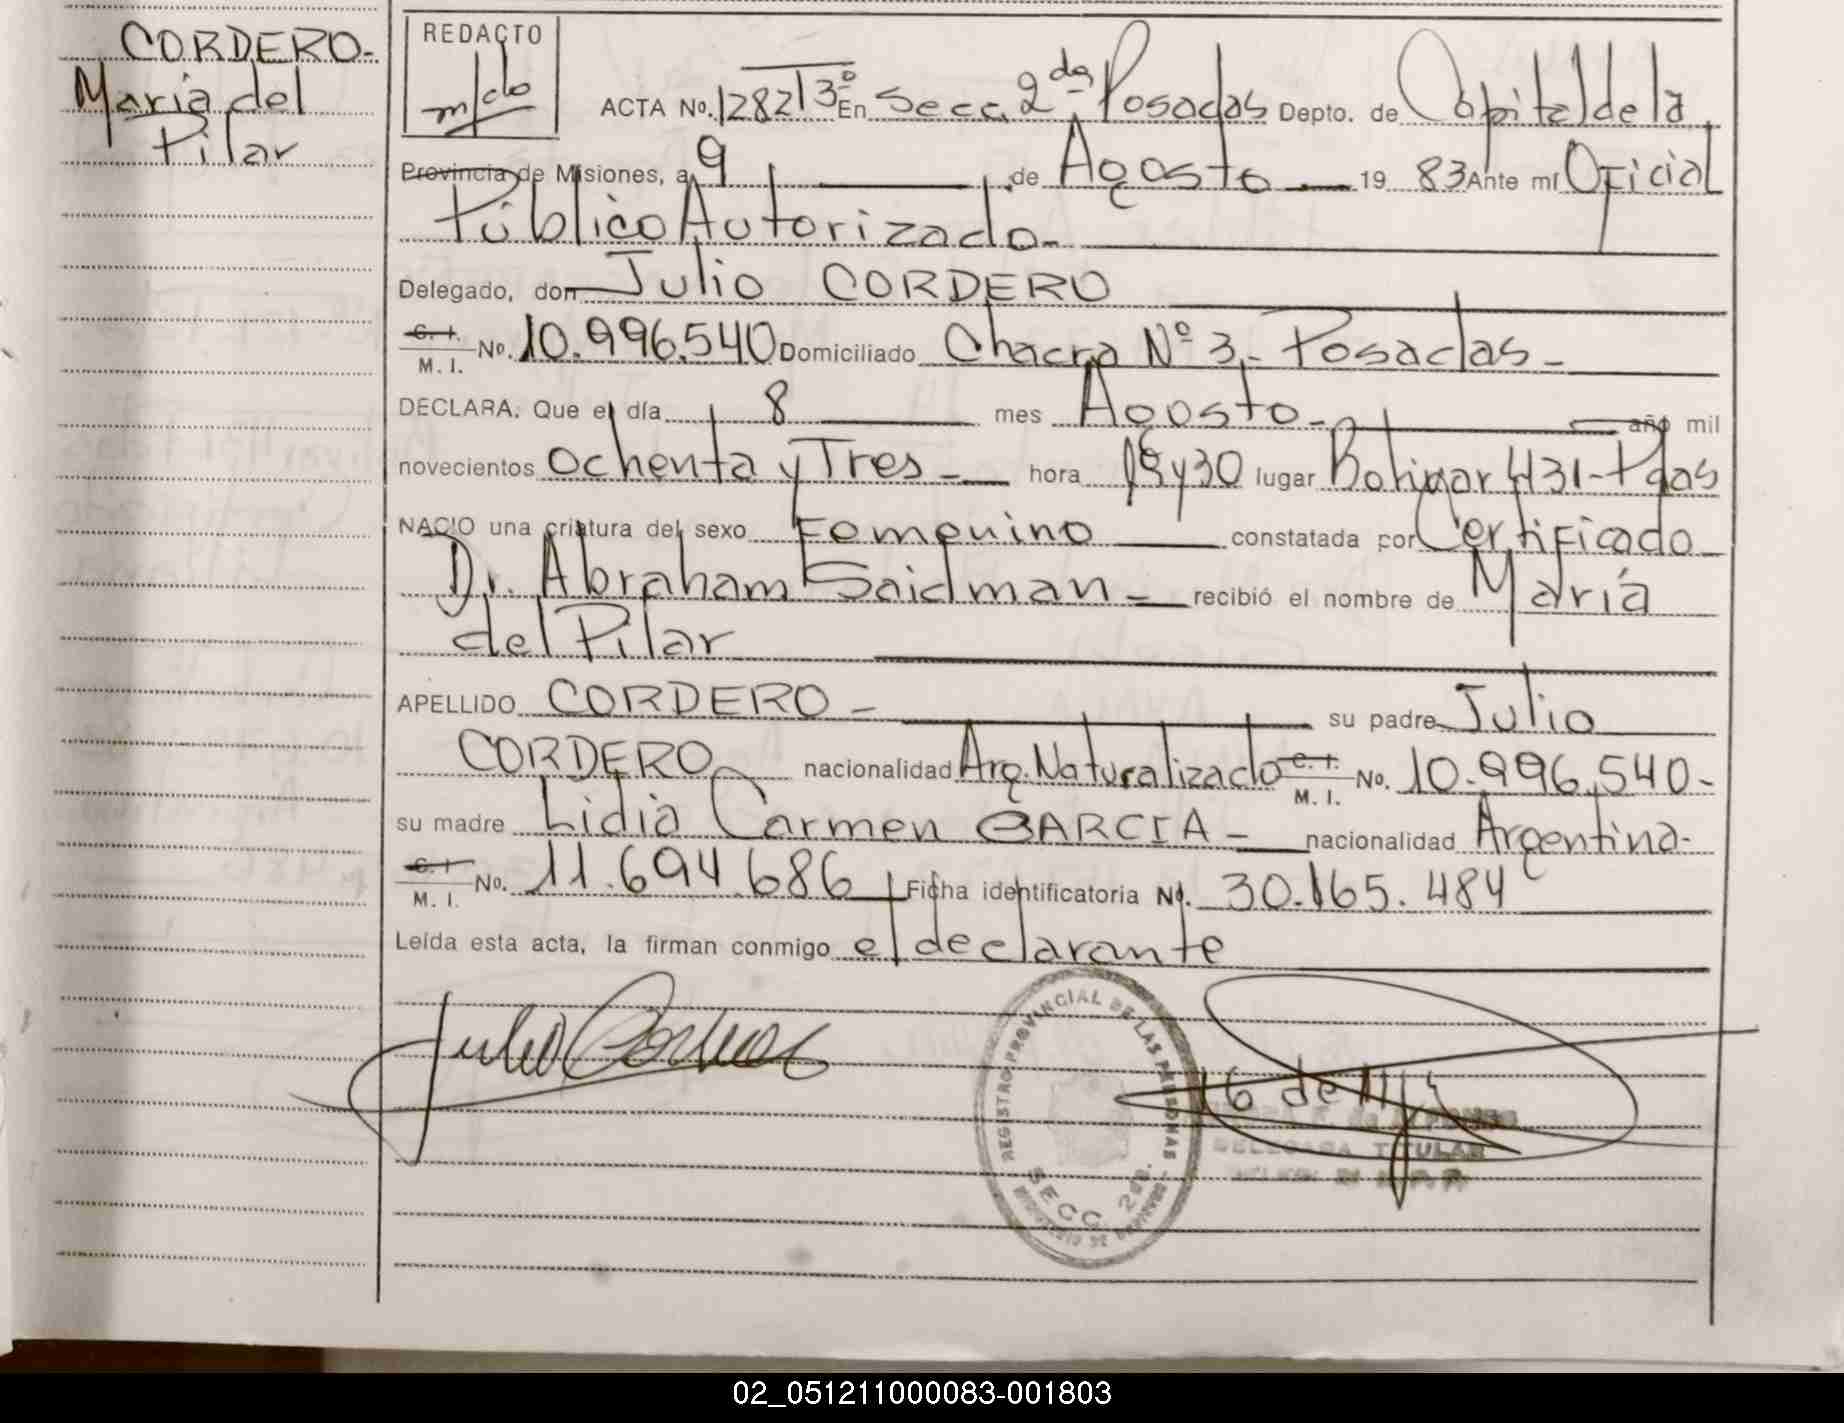 CORDERO-
María del
Pilar
REDACTO
ACTA No. 1282 T 3º En Secc. 2da Posadas Depto. de Capital de la
Provincia de Misiones, a 9 de Agosto 19 83 Ante mí Oficial
Público Autorizado-
Delegado, don Julio CORDERO
C. I. M. I. No. 10.996.540 Domiciliado Chacra Nº 3,- Posadas-
DECLARA: Que el día 8 mes Agosto- año mil
novecientos ochenta y Tres- hora y 30 lugar Bolivar 431-Pdas
NACIO una criatura del sexo Femenino constatada por Certificado
Dr. Abraham Saidman- recibió el nombre de María
del Pilar
APELLIDO CORDERO- su padre Julio
CORDERO nacionalidad Arg. Naturalizado C. I. M. I. No. 10.996.540-
su madre Lidia Carmen GARCIA- nacionalidad Argentina-
C. I. M. I. No. 11.694.686 Ficha identificatoria Nº. 30.165.484
Leída esta acta, la firman conmigo el declarante
Julio Cordero
REGISTRO PROVINCIAL DE LAS PERSONAS
SECC. 2da.
16 de
DELEGADA TITULAR
02_051211000083-001803